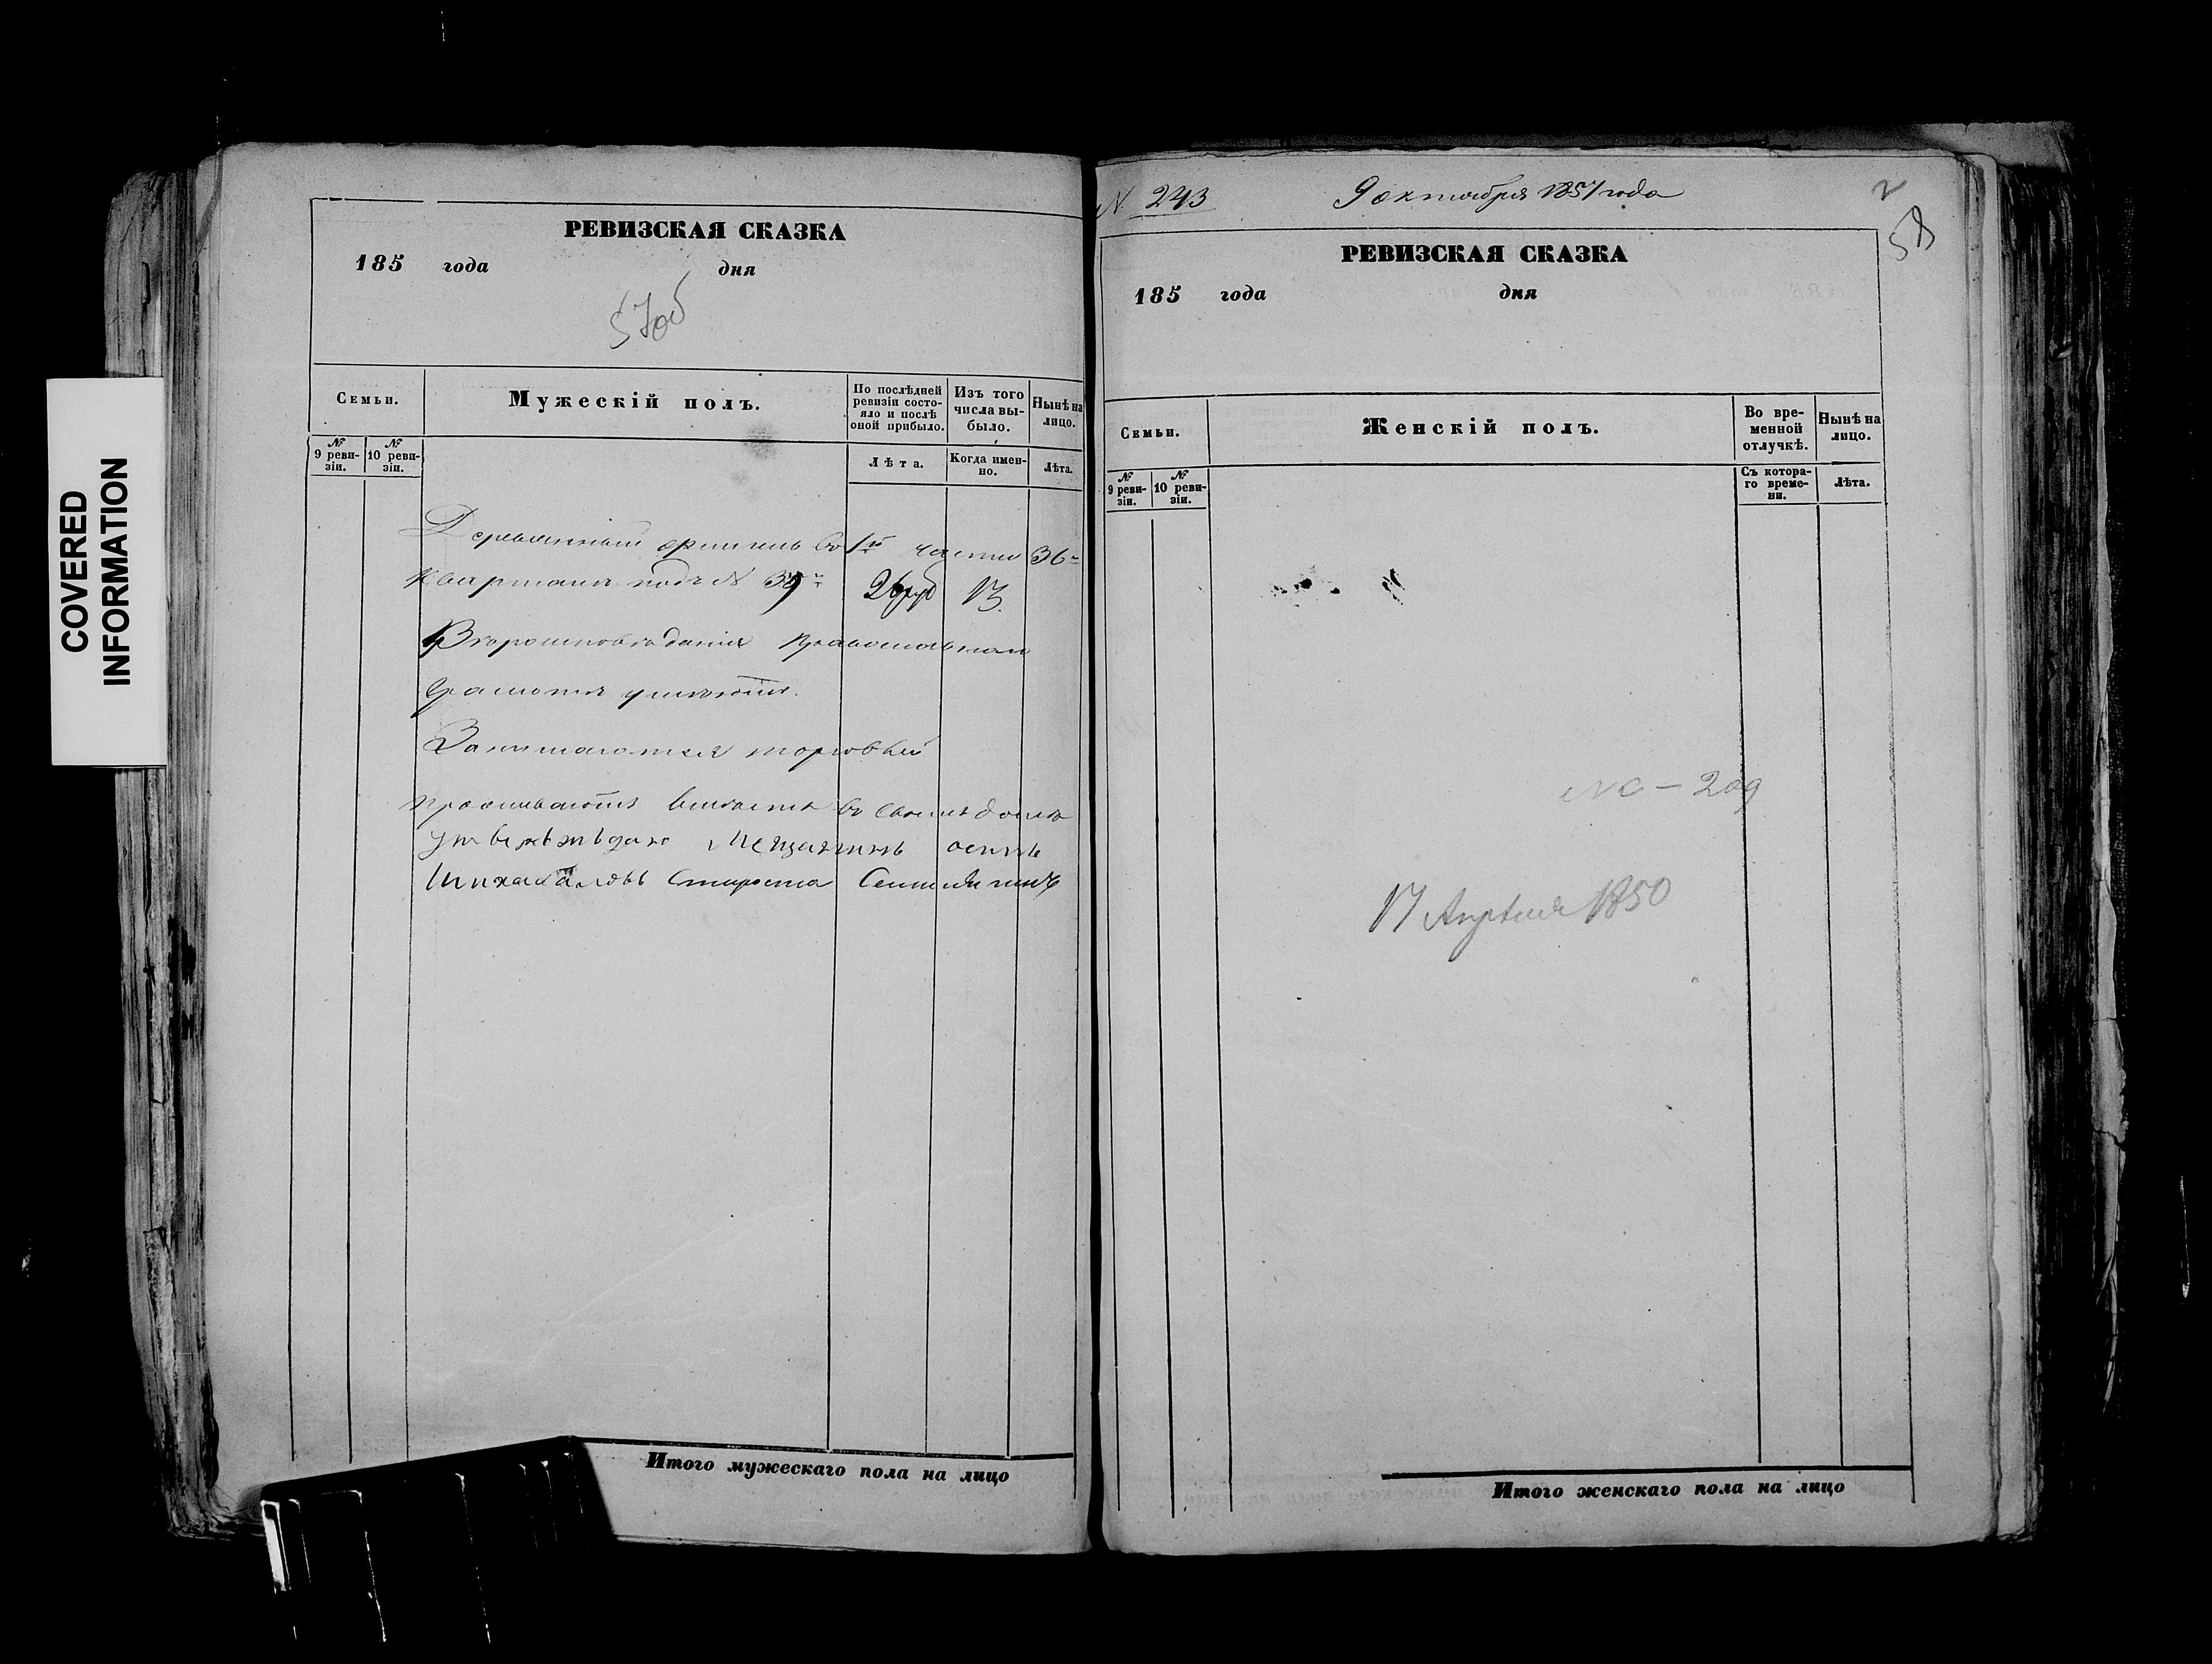 COVERED
INFORMATION
РЕВИЗСКАЯ СКАЗКА
185 года дня
57об
Семьи.
Мужескій полъ.
По послѣдней ревизіи состояло и послѣ оной прибыло.
Изъ того числа выбыло.
Нынѣ на лицо.
№ 9 ревизіи.
№ 10 ревизіи.
Лѣта.
Когда именно.
Лѣта.
Деревянный во 1й части 36й
Кварталъ подъ № 39й 26 руб
Вѣроисповѣданія Православнаго
Грамотѣ умѣютъ.
Занимаются торговлей
проживаютъ вмѣстѣ въ своемъ домѣ
Мещанинъ осипъ
Староста
Итого мужескаго пола на лицо
N. 243 9 октября 1857 года
2
58
РЕВИЗСКАЯ СКАЗКА
185 года дня
Семьи.
Женскій полъ.
Во временной отлучкѣ.
Нынѣ на лицо.
№ 9 ревизіи.
№ 10 ревизіи.
Съ котораго времени.
Лѣта.
209
17 Апрѣля 1850
Итого женскаго пола на лицо